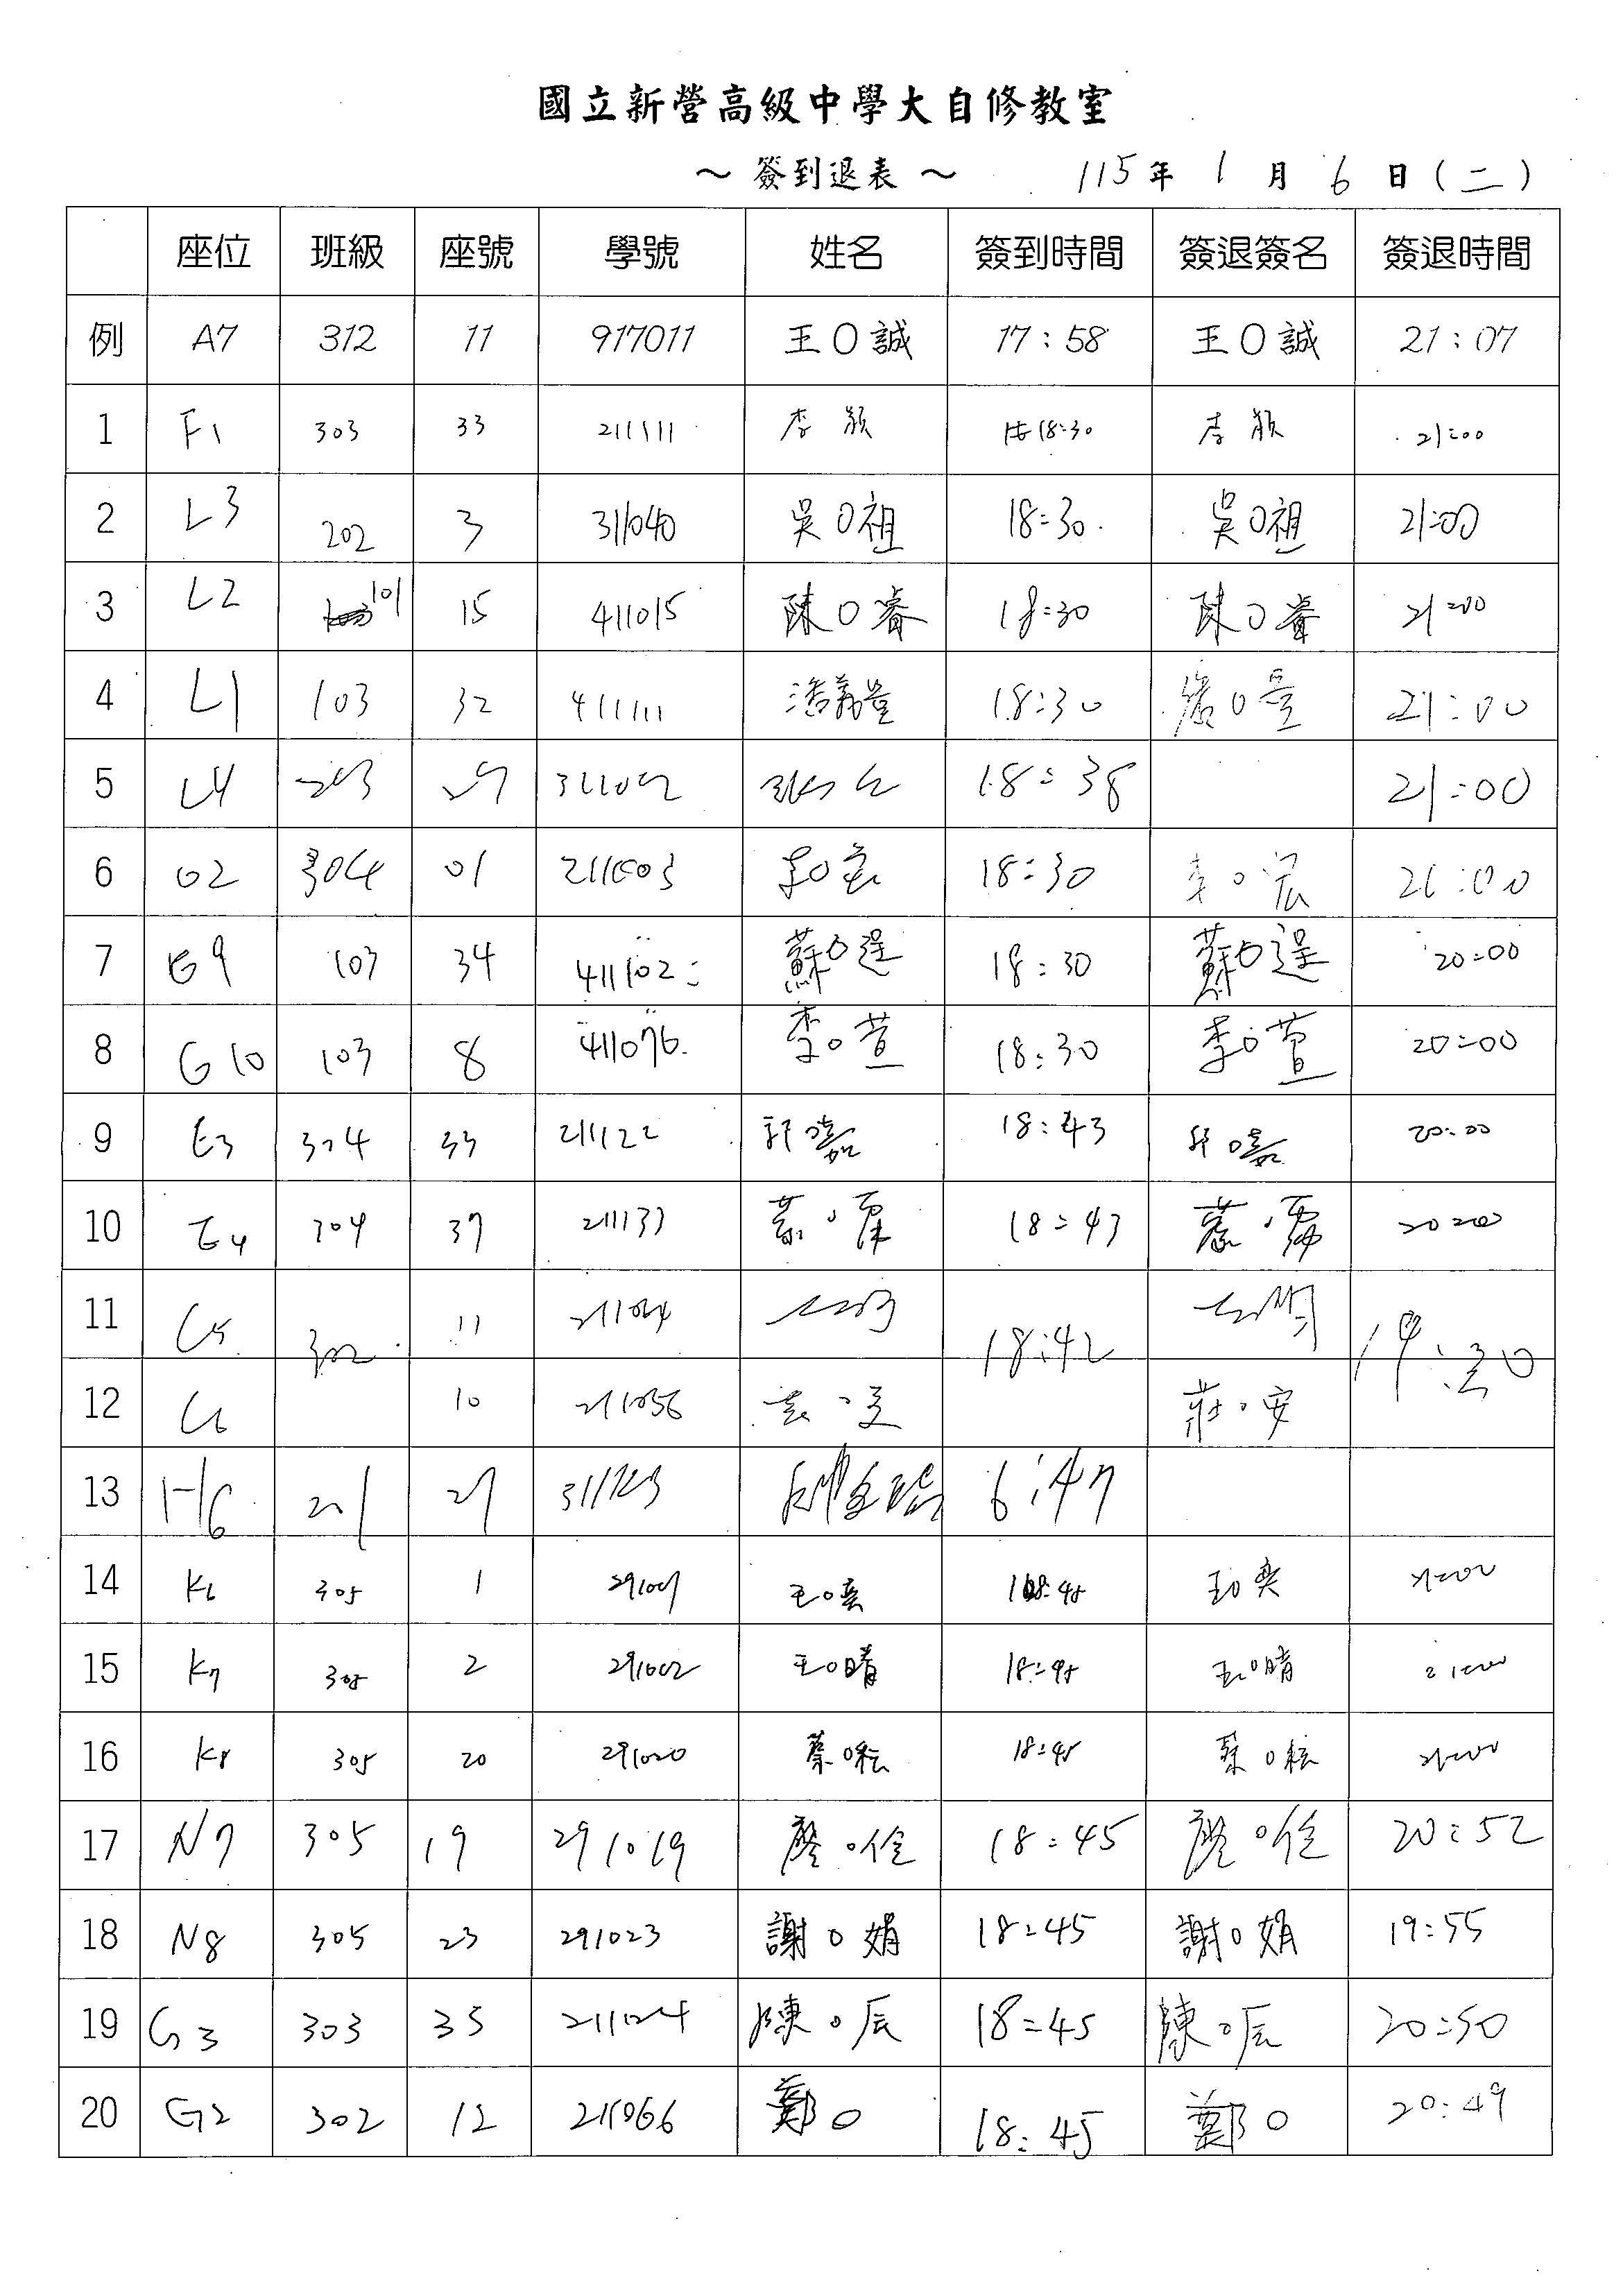 國立新營高級中學大自修教室
～ 簽到退表 ～ 115年 1月 6日(二)
座位 班級 座號 學號 姓名 簽到時間 簽退簽名 簽退時間
例 A7 312 11 917011 王O誠 17:58 王O誠 21:07
1 F1 303 33 211111 李 穎 18:30 李 穎 21:00
2 L3 202 3 311040 吳O祖 18:30 吳O祖 21:00
3 L2 101 15 411015 陳O睿 18:30 陳O睿 21:00
4 L1 103 32 411111 18:30 21:00
5 L4 203 18:38 21:00
6 O2 304 01 211003 李O宏 18:30 李O宏 21:00
7 G9 103 34 411102 蘇O逞 18:30 蘇O逞 20:00
8 G10 103 8 411076 李O萱 18:30 李O萱 20:00
9 E3 304 33 211122 18:43 20:00
10 E4 304 37 211133 18:43 20:00
11 C5 302 11 18:42 19:30
12 C6 10 211056 莊O安
13 H6 201 27 6:47
14 K6 305 1 王O奕 18:45 王O奕 21:00
15 K7 305 2 291002 王O晴 18:45 王O晴 21:00
16 K8 305 20 291020 蔡O耘 18:45 蔡O耘 21:00
17 N7 305 19 291019 廖O佺 18:45 廖O佺 20:52
18 N8 305 23 291023 謝O娟 18:45 謝O娟 19:55
19 G3 303 35 211124 陳O辰 18:45 陳O辰 20:50
20 G2 302 12 211066 鄭O 18:45 鄭O 20:49